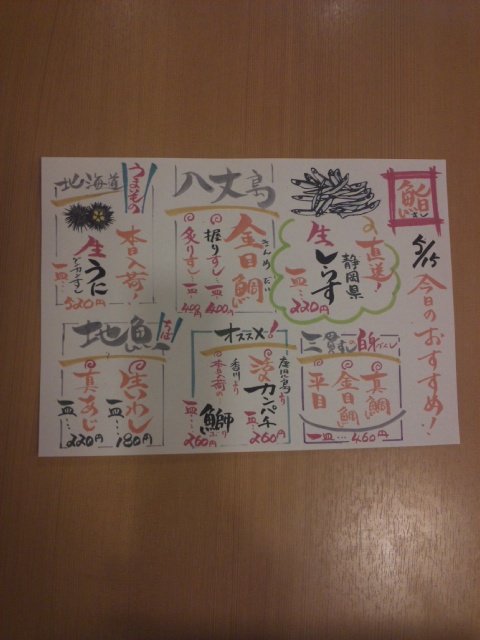 鮨
5/15
今日のおすすめ!
直送!
静岡県
生しらす
一皿…220円
八丈島
きんめだい
金目鯛
握りすし
一皿…400円
炙りすし
一皿…400円
うまいもの
北海道
本日入荷!
生うに
一皿…520円
三貫すし
白身づくし
真鯛
金目鯛
平目
一皿…460円
オススメ!
鹿児島より
活〆カンパチ
一皿…260円
香川より
本日入荷の
鰤
ぶり
一皿…260円
地魚
生いわし
一皿…180円
真あじ
一皿…220円